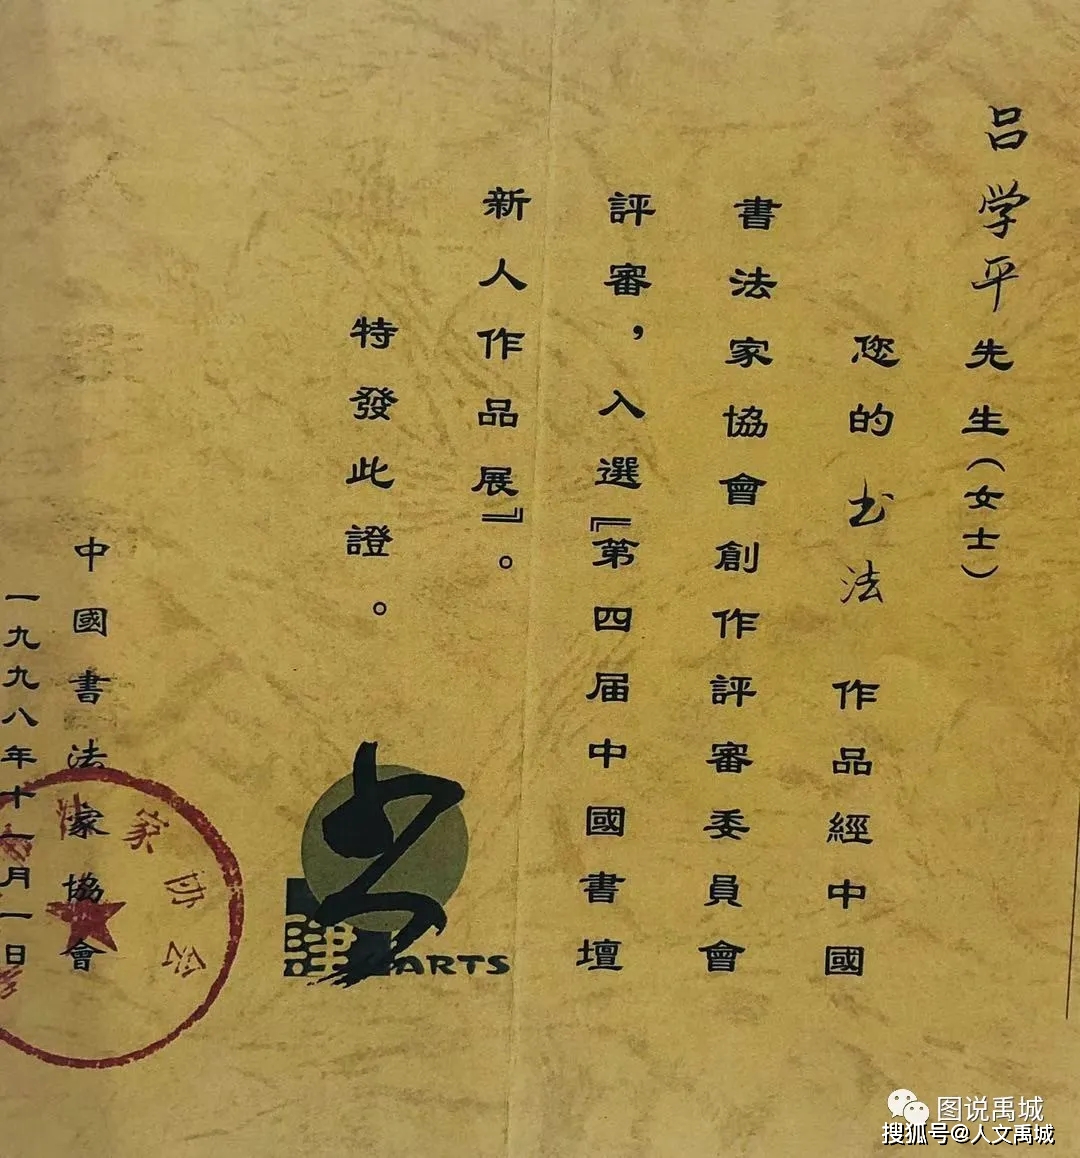 吕学平先生(女士)
您的书法作品經中國
書法家協會創作評審委員會
評審，入選『第四届中國書壇
新人作品展』。
特發此證。
中國書法家協會
一九九八年十一月一日
家协会
ARTS
图说禹城
搜狐号@人文禹城